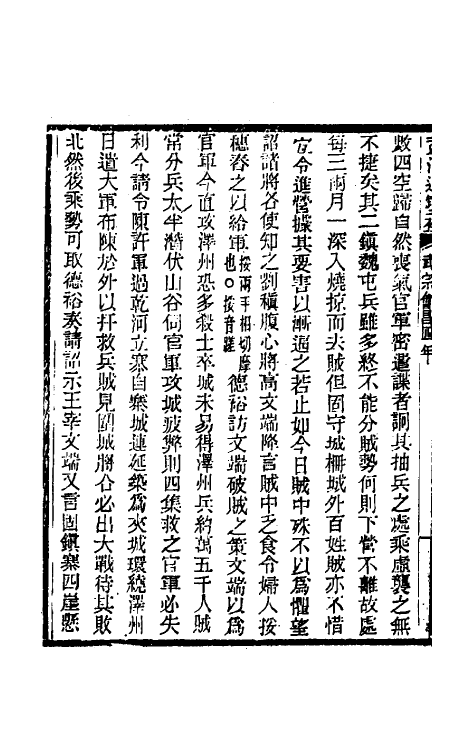 敗四空歸自然喪氣官軍密遣諜者詗其抽兵之處乘虛襲之無
不捷矣其二鎮魏屯兵雖多終不能分賊勢何則下營不離故處
每三兩月一深入燒掠而去賊但固守城柵城外百姓賊亦不惜
宜令進營據其要害以漸逼之若止如今日賊中殊不以爲懼望
詔諸將各使知之劉稹腹心將高文端降言賊中乏食令婦人挼
穗舂之以給軍挼兩手相切摩也○挼音䕺德裕訪文端破賊之策文端以爲
官軍今直攻澤州恐多殺士卒城未易得澤州兵約萬五千人賊
常分兵太半潛伏山谷伺官軍攻城疲弊則四集救之官軍必失
利今請令陳許軍過乾河立寨自寨城連延築爲夾城環繞澤州
日遣大軍布陳於外以扞救兵賊見圍城將合必出大戰待其敗
北然後乘勢可取德裕奏請詔示王宰文端又言固鎮寨四崖懸